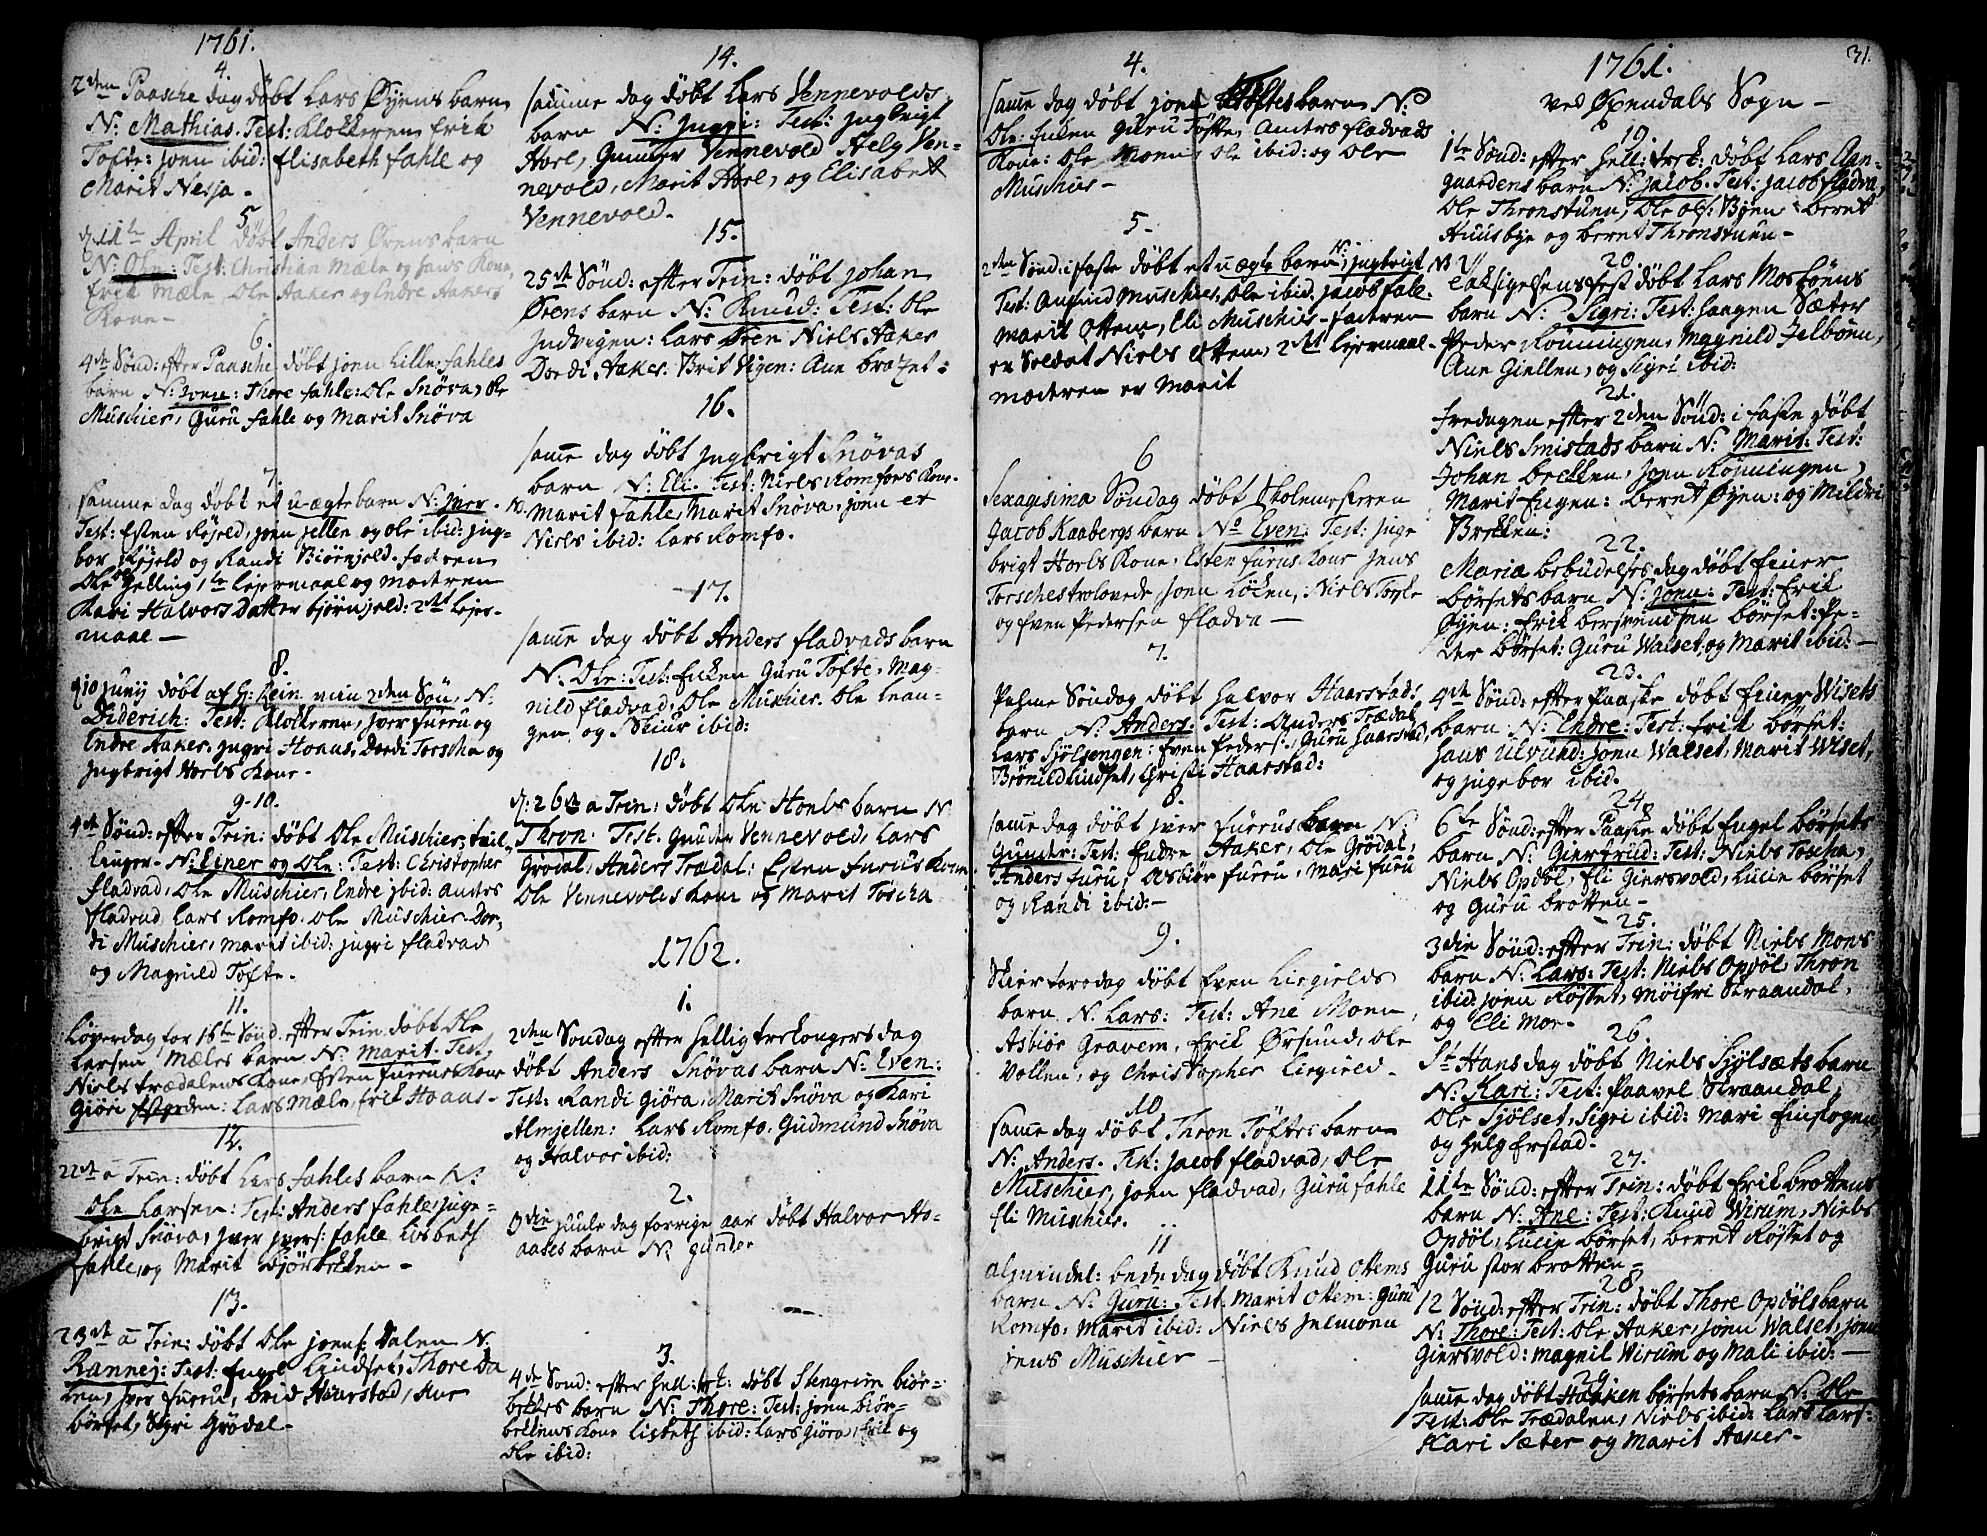 1761.
4.
2den Paasche dag döbt Lars Øyens barn
N: Mathias. Test: Klokkeren, Erik
Tofte: joen ibid: Elisabeth fahle og
Marit Nesja.
5
d 11te April döbt Anders Ørens barn
N: Ole: Test: Christian Mæle og hans Kone,
Erik Mæle, Ole Aaker og Endre Aakers
Kone -
6.
4de Sönd: efter Paasche döbt joen Lille-fahles
barn N: Thore fahle: Ole Snöva, Ole
Muschier, Guru fahle og Marit Snöva
7.
samme dag döbt et u-ægte barn N: jver.
Test: Esten joen og Ole ibid: jng-
bor og Randi Biörnjeld. faderen
Ole Gelling, 1te Lejermaal og moderen
Kari Halvors Datter björnjeld: 2det Lejer-
maal -
8.
d 10 junij döbt af H: Hein min 2den Sön, N:
Diderich: Test: Klokkeren, jver furru og
Endre Aaker, jngri Hoaas, Dordi Torscha og
jngbrigt Horls Kone.
9-10.
4de Sönd: efter Trin: döbt Ole Muschiers tvil-
linger. N: Einer og Ole: Test: Christopher
fladvad, Ole Muschier, Endre ibid: anders
fladvad Lars Romfo. Ole Muschier Dor-
di Muschier, marit ibid: jngri fladvad
og Magnild Tofte.
11.
Löverdag for 16te Sönd: efter Trin döbt Ole
Larsen Mæles barn N: Marit. Test,
Niels trædalens Kone, Esten furrus Kone
Giöri : Lars Mæle, Erik Hoaas.
12.
22de a Trin: döbt Lars fahles barn N:
Ole Larsen: Test: Anders fahle: jnge-
brigt Snöva, jver jvers: fahle Lisbeth
fahle, og Marit Björbekken -
13.
23de a Trin: döbt Ole joens: Dalen N.
Rannej: Test: Engel Lindset, Thore Da
len, jver furru, brid Haarstad,
börset, Sigri Grödal -
14.
samme dag döbt Lars Vennevolds
barn N: jngri: Test: jngbrigt
Horl, Gunner Vennevold Helg Ven-
nevold, Marit Horl, og Elisabet
Vennevold.
15.
25de Sönd: efter Trin: döbt johan
Ørens barn N: Knud: Test: Ole
jndvigen: Lars Øren Niels Aaker
Dordi Aaker. Brit Vigen: Ane
16.
samme dag döbt jngbrigt Snövas
barn N: Eli. Test: Niels Romfoes Kone.
Marit fahle, Marit Snöva, joen et
Niels ibid: Lars Romfo.
17.
samme dag döbt Anders fladvads barn
N: Ole: Test: Enken Guru Tofte, Mag-
nild fladvad, Ole Muschier. Ole Lean-
gen, og Skiur ibid:
18.
d: 26de a Trin: döbt Ole Hoels barn N
Thron. Test: Gunder Vennevold, Lars
Grödal, Anders Trædal: Esten furrus Kone
Ole Vennevolds Kone og Marit Toscha
1762.
1.
2den Söndag efter hellig tre kongers dag
döbt Anders Snövas barn N: Even:
Test: Randi Giöra, Marit Snöva og Kari
Almjellen: Lars Romfo. Gudmund Snöva
og Halvor ibid:
2.
3die juule dag forrige aar döbt Halvor Ho-
aases barn N: gunder
3.
4de Sönd: efter Hell: trek: döbt Stengrim biör-
bekkes barn N: Thore: Test: joen biör-
bekkens Kone Lisbeth ibid: Lars Giöra, Erik og
Ole ibid:
4.
samme dag döbt joen Töftes barn N:
Ole: Enken Guru Töfte, Anders fladvads
Kone: Ole Moen, Ole ibid: og Ole
Muschier -
5.
2den Sönd: i faste döbt et uægte barn N: jngbrigt
Test: Amund Muschier, Ole ibid: jacob fale.
Marit Ottem, Eli Muschier - faderen
er Soldat Niels Ottem, 2det Lejermaal.
moderen er Marit
6
Sexagesima Söndag döbt Skolemesteren
Jacob Kaabergs barn No Even: Test: jnge
brigt Horls Kone, Esten furrus Kone Jens
Torsches trolovede, joen Löken, Niels Toske
og Even Pedersen fladva -
7.
Palme Söndag döbt Halvor Haarstads
barn N: Anders. Test: Anders Trædal
Lars Sjölsengen: Even Peders:, Guru Haarstad,
Brönild Lindset, Christi Haarstad:
8.
samme dag döbt jver furrus barn N:
Gunder: Test: Endre Aaker, Ole Grödal,
Anders furu, Asbiör furru, Mari furu
og Randi ibid:-
9.
Skier torsdag döbt Even Liegields
barn N. Lars: Test: Ane Moen,
Asbiör Gravem, Erik Ørsund, Ole
Vollen, og Christopher Liegield.
10
samme dag döbt Thron Töftes barn
N: Anders. Test: jacob fladvad, Ole
Muschier, joen fladvad, Guru fahle
Eli Muschier.
11
almindel: bededag döbt Knud Ottems
barn N: Guru: Test: Marit Ottem: Guru
Romfo, Marit ibid: Niels jelmoen
jens Muschier -
1761.
31.
ved Øxendals Sogn -
19.
1te Sönd: efter hell: trek: döbt Lars Aan-
gaardens barn N: jacob. Test: jacob fladva,
Ole Thronstuen, Ole Ols: Byen Beret
Huusbye og beret Thronstuen -
20.
Taksigelsens fest döbt Lars Mosböens
barn N: Sigri: Test: Haagen Sæter
Peder Rönningen, Magnild Jelböen,
Ane Giellen, og Sigri ibid:
21.
Fredagen efter 2den Sönd: i faste döbt
Niels Smistads barn N: Marit: Test:
Johan brekken, Joen Rönningen,
Marit Engen: beret Øyen: og Mildri
Brekken:
22.
Maria bebudelses dag döbt Einer
börsets barn N: joen: Test: Erik
Øyen: Erik berssvendsen börset: Pe-
der börset: Guru Walset, og Marit ibid: -
23.
4de Sönd: efter Paaske döbt Einer Wisets
barn N: Endre: Test: Erik börset:
Hans Ulvund: joen Walset, Marit Wiset,
og jngebor ibid:
24.
6te Sönd: efter Paaske döbt Engel börsets
barn N: Giertrud: Test: Niels Toscha,
Niels Opdöl, Eli Giersvold, Lucie börset
og Guru brotten -
25.
3die Sönd: efter Trin: döbt Niels Moens
barn N: Lars: Test: Niels Opdöl, Thron
ibid: joen Röstet, Möifri Straandal,
og Eli Moe.
26.
St Hans dag döbt Niels Sjölsæts barn
N: Kari: Test: Paavel Straandal,
Ole Sjölset, Sigri ibid: Mari Finskogen
og helg Erstad.
27.
11te Sönd: efter Trin: döbt Erik brottens
barn N: Ane: Test: Knud Wirum, Niels
Opdöl, Lucie börset, beret Röstet og
Guru stor brotten -
28.
12 Sönd: efter Trin: döbt Thore Opdöls barn
N: Thore: Test: Ole Aaker, joen Walset, joen
Giersvold: magnil Wirum og Mali ibid: -
29.
samme dag döbt Haaken börsets barn N: Ole
Test: Ole Trædalen, Niels ibid: Lars Lars:
Kari Sæter og Marit Aaker.